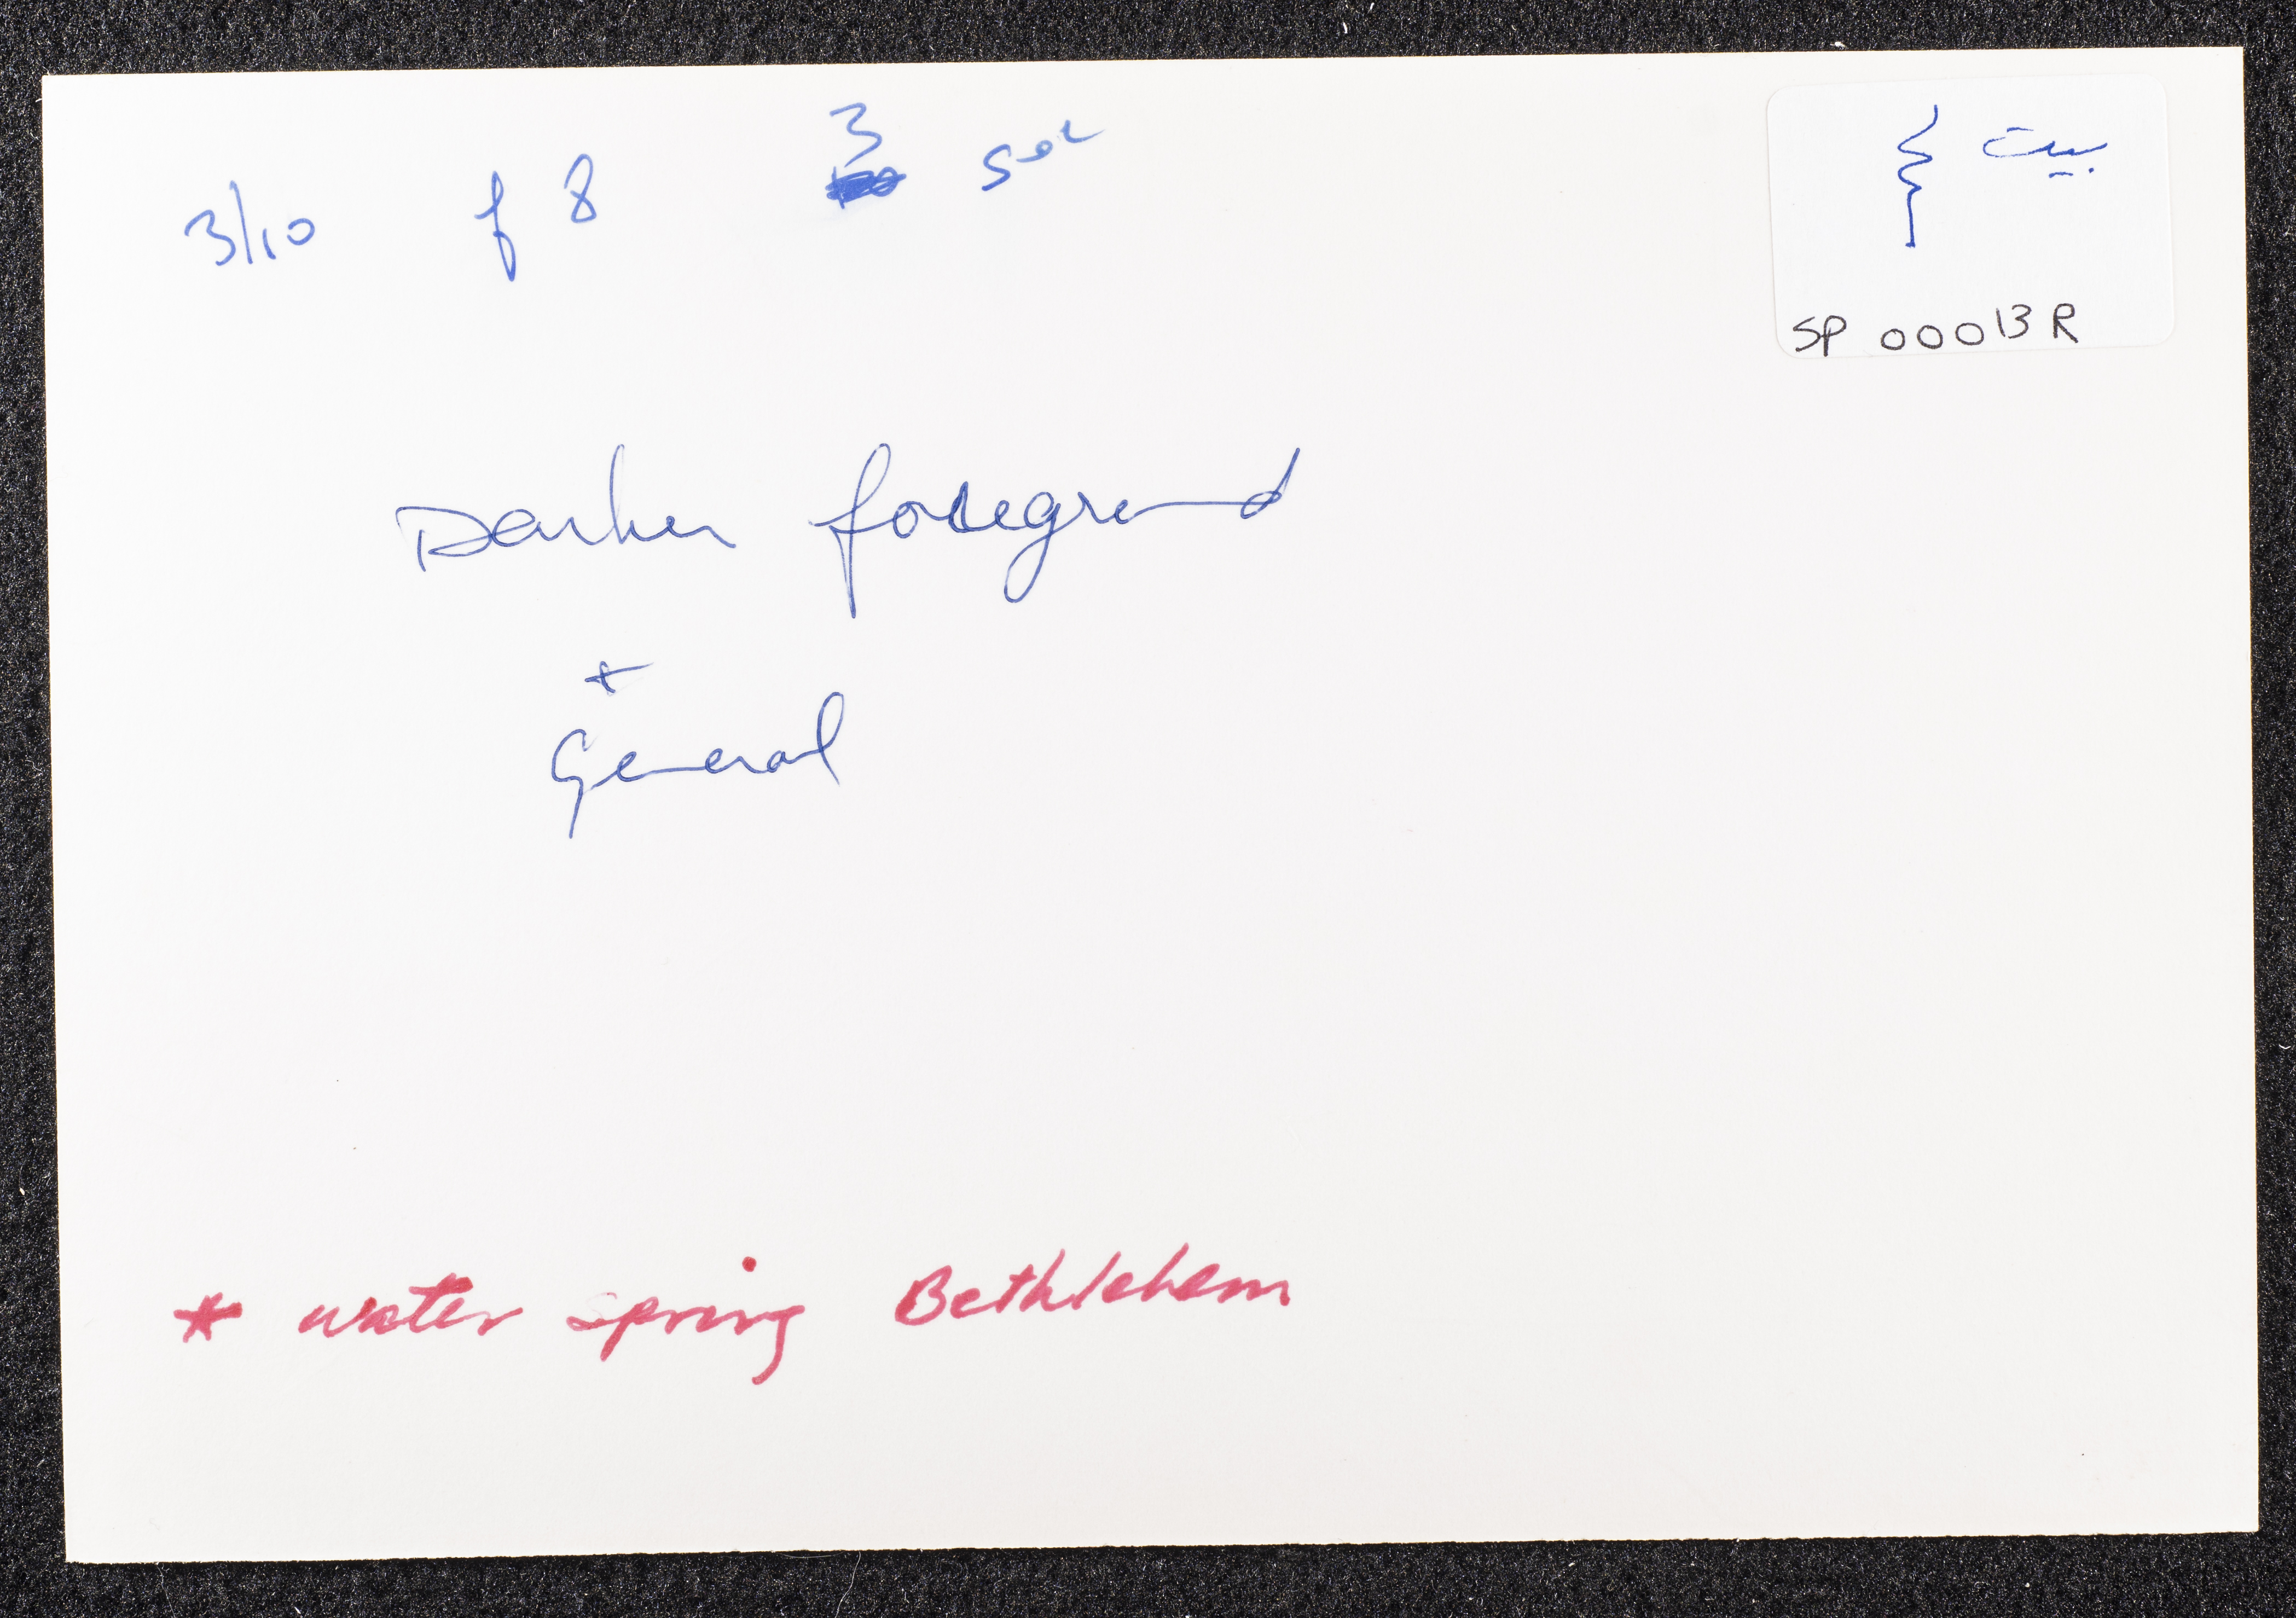 3/10 f 8 3 sec
بيت لحم
SP 00013 R
Darker foregrund
+
General
* water spring Bethlehem